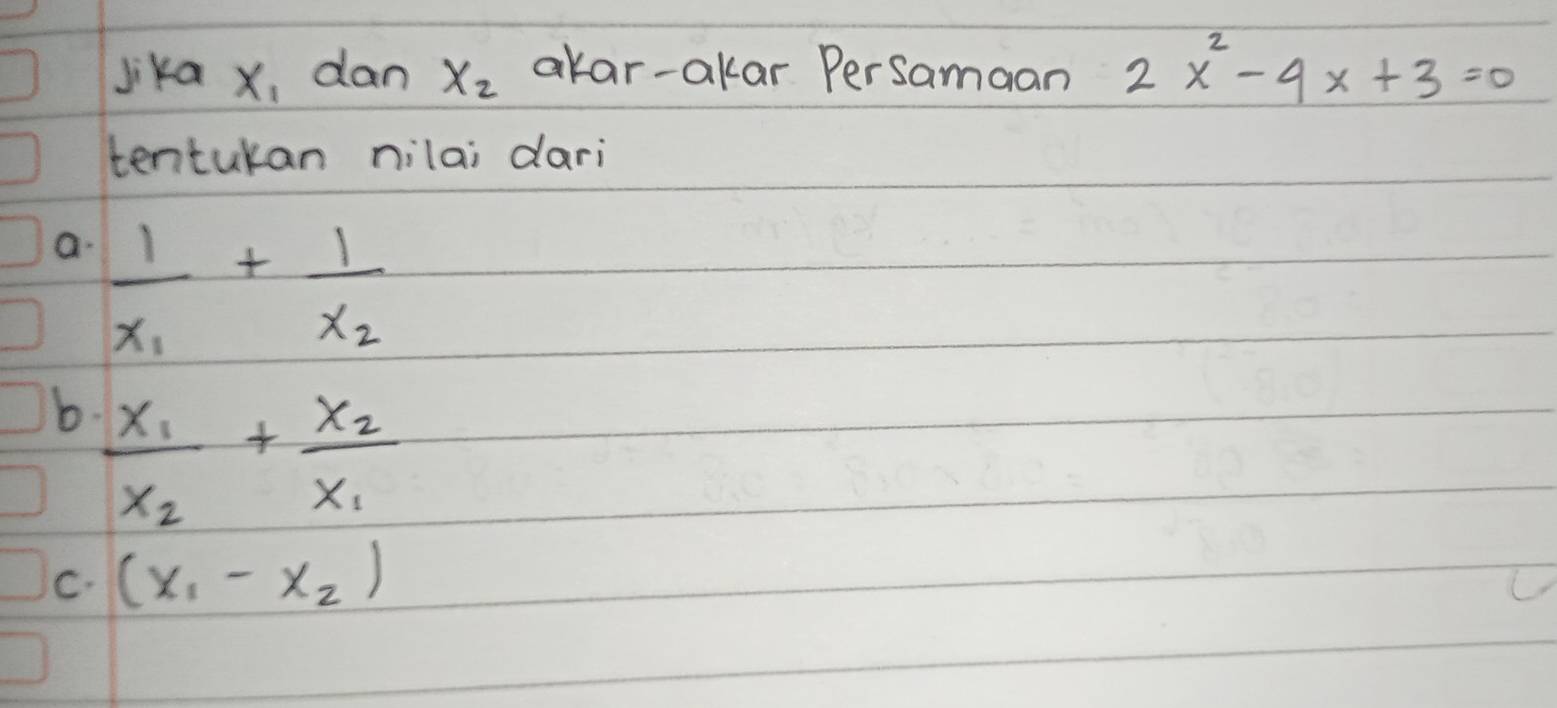 Jika x₁ dan x₂ akar-akar Persamaan 2x² - 9x + 3 = 0
tentukan nilai dari
a. 1/x₁ + 1/x₂
b. x₁/x₂ + x₂/x₁
c. (x₁ - x₂)